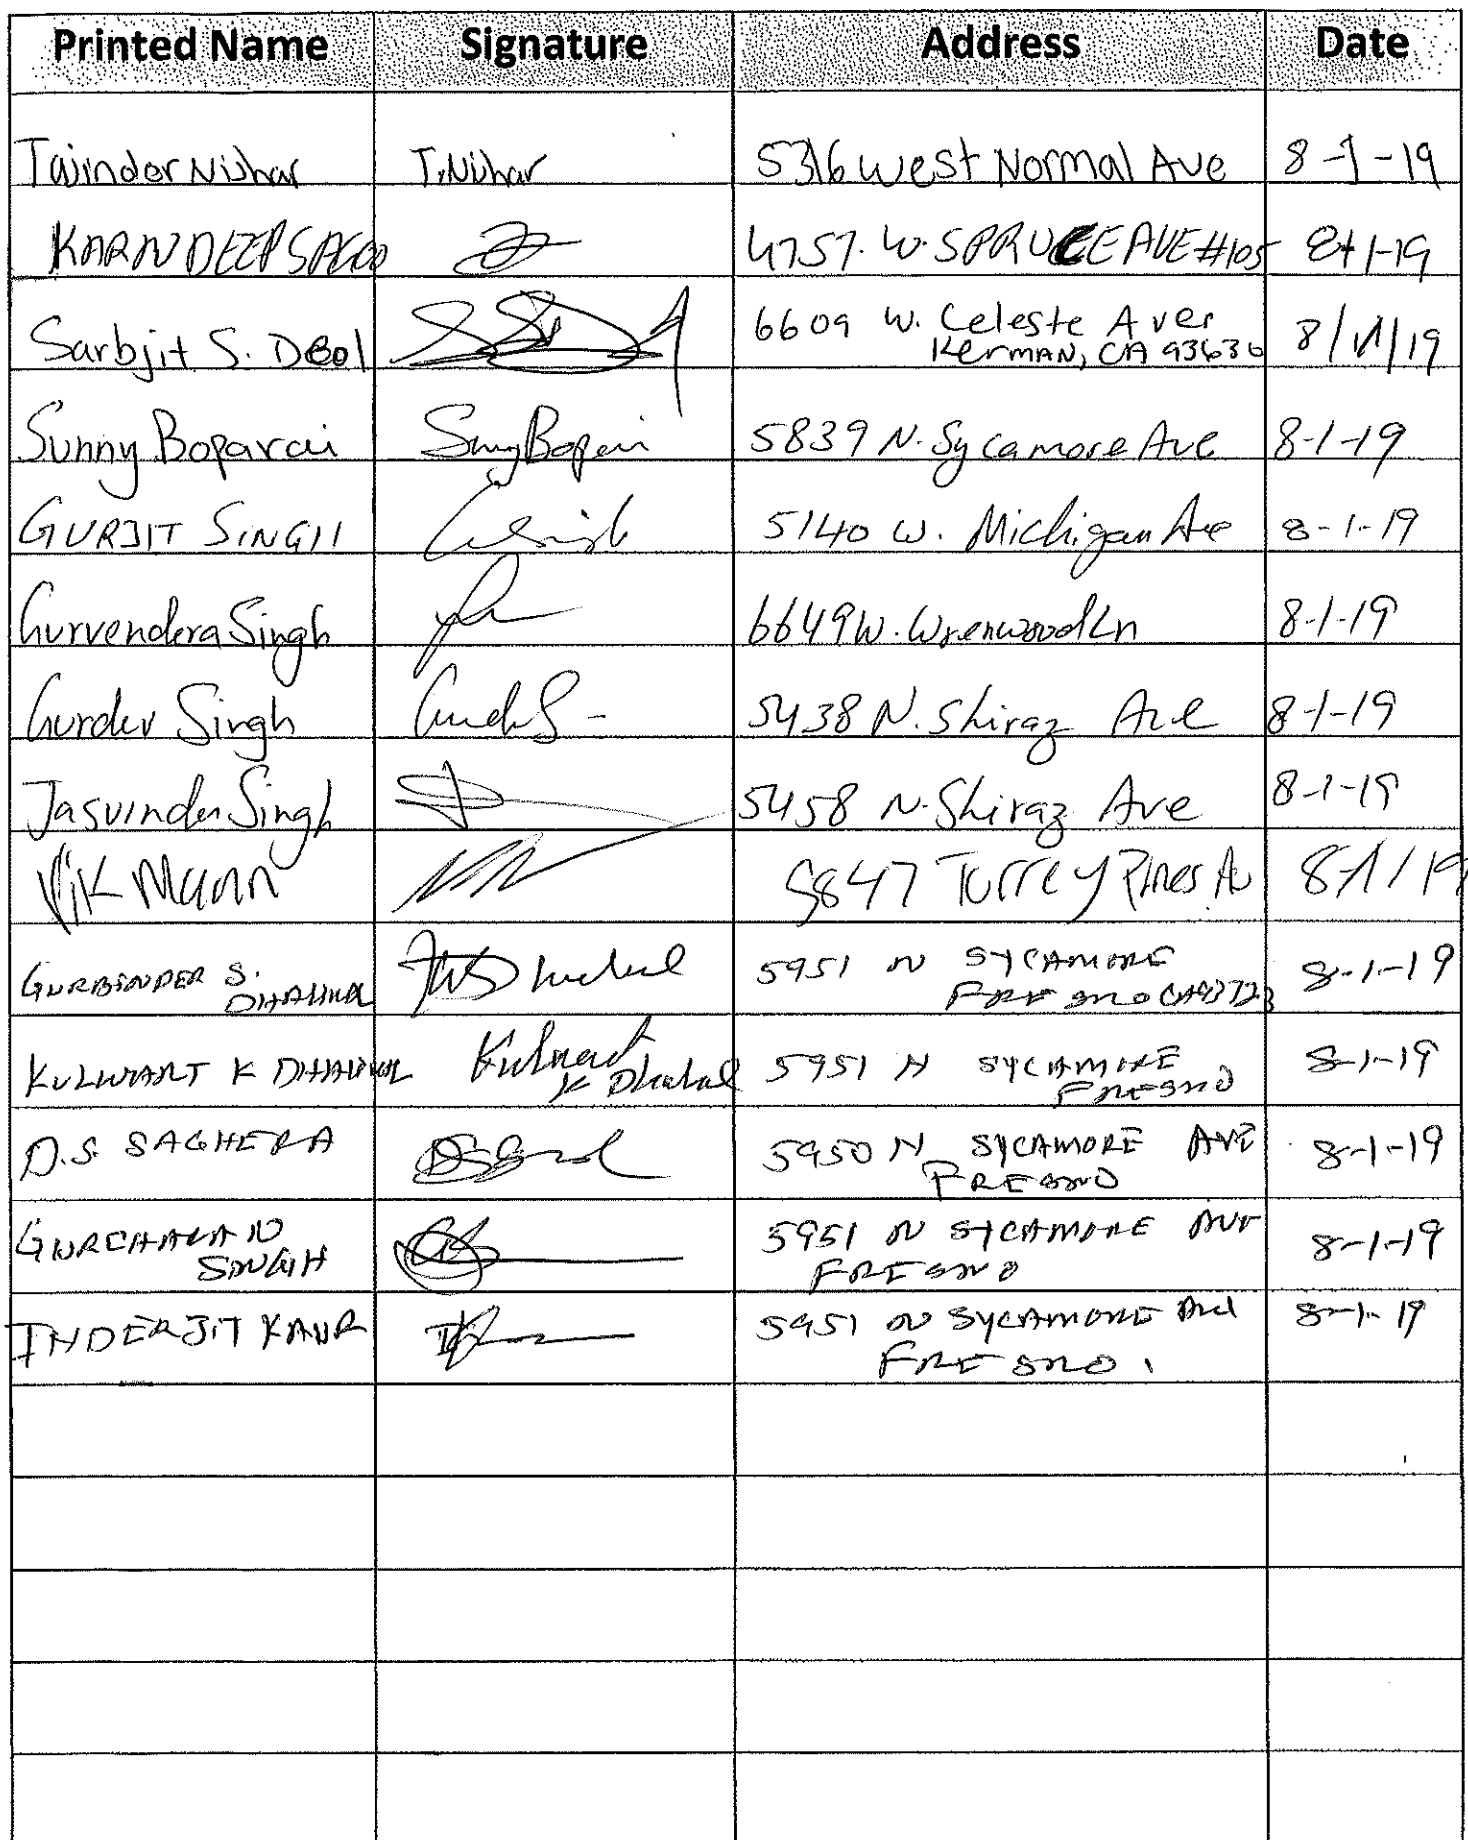 Printed Name Signature Address Date
Tajinder Nijhar T.Nijhar 5316 West Normal Ave 8-1-19
KARNDEEP 4757. W. SPRUCE AVE #105 8-1-19
Sarbjit S. Deol 6609 W. Celeste Aver 8/1/19
Kerman, CA 93630
Sunny Boparai Sunny Boparai 5839 N. Sycamore Ave 8-1-19
GURJIT SINGH 5140 W. Michigan Ave 8-1-19
Gurvendera Singh 6649 W. Wrenwood Ln 8-1-19
Gurdev Singh 5438 N. Shiraz Ave 8-1-19
Jasvinder Singh 5458 N. Shiraz Ave 8-1-19
Vik Mann 5847 Torrey Pines Av 8/1/19
GURBINDER S. 5951 N SYCAMORE 8-1-19
DHALIWAL FRESNO CA 93723
KULWANT K DHALIWAL Kulwant 5951 N SYCAMORE 8-1-19
K Dhaliwal FRESNO
D.S. SAGHERA 5950 N SYCAMORE AVE 8-1-19
FRESNO
GURCHARAN 5951 N SYCAMORE AVE 8-1-19
SINGH FRESNO
INDERJIT KAUR IK 5951 N SYCAMORE Ave 8-1-19
FRESNO.